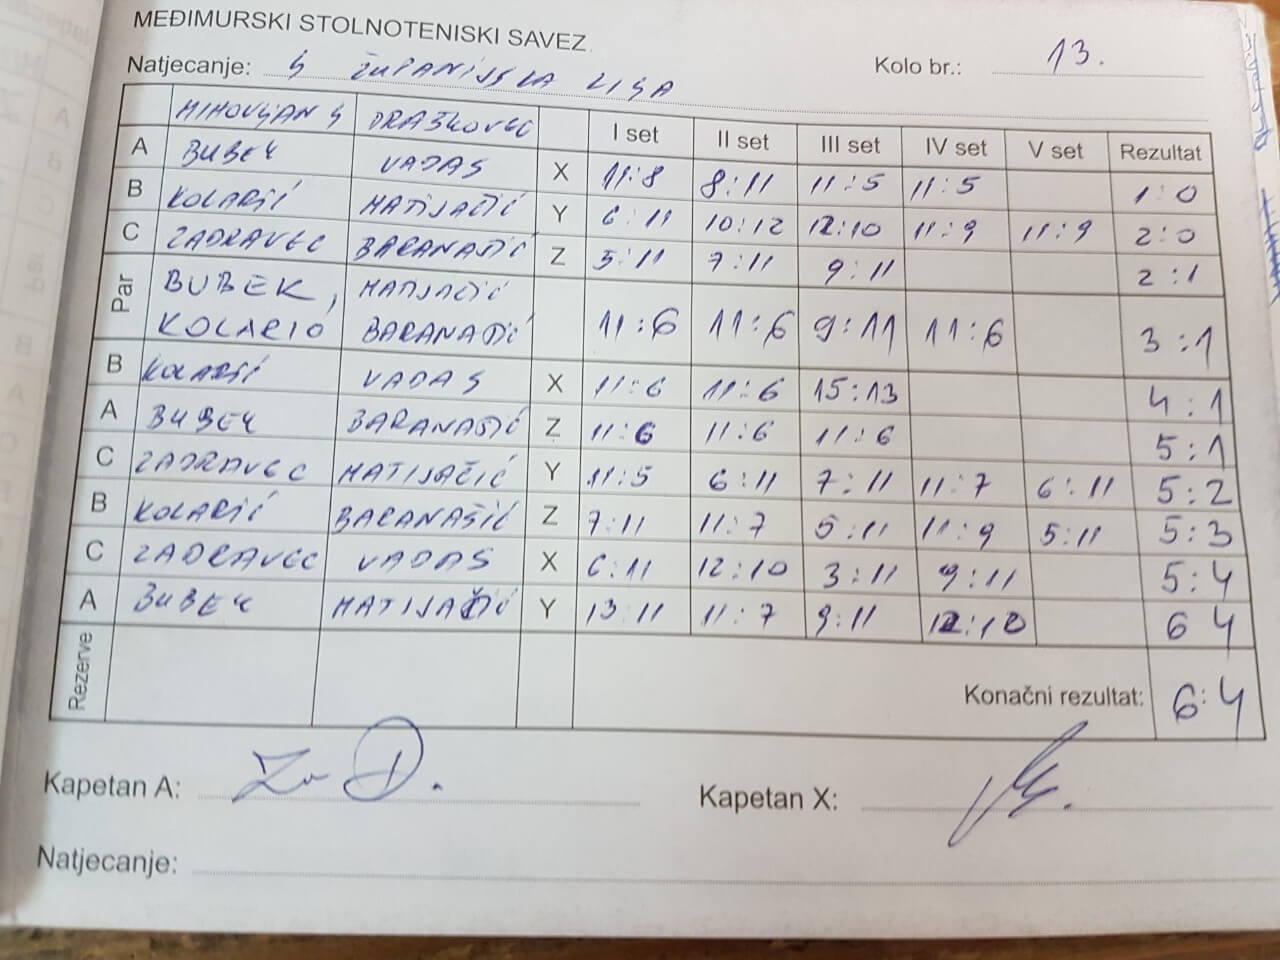 MEĐIMURSKI STOLNOTENISKI SAVEZ
Natjecanje: 4 ŽUPANIJSKA LIGA Kolo br.: 13.
MIHOVLJAN 4 DRAŠKOVEC I set II set III set IV set V set Rezultat
A BUBEK VADAS X 11:8 8:11 11:5 11:5 1:0
B KOLARIĆ MATIJAČIĆ Y 6:11 10:12 12:10 11:9 11:9 2:0
C ZADRAVEC BARANAŠIĆ Z 5:11 7:11 9:11 2:1
Par BUBEK, MATIJAČIĆ
KOLARIĆ BARANAŠIĆ 11:6 11:6 9:11 11:6 3:1
B KOLARIĆ VADAS X 11:6 11:6 15:13 4:1
A BUBEK BARANAŠIĆ Z 11:6 11:6 11:6 5:1
C ZADRAVEC MATIJAČIĆ Y 11:5 6:11 7:11 11:7 6:11 5:2
B KOLARIĆ BARANAŠIĆ Z 7:11 11:7 5:11 11:9 5:11 5:3
C ZADRAVEC VADAS X 6:11 12:10 3:11 9:11 5:4
A BUBEK MATIJAČIĆ Y 13:11 11:7 9:11 12:10 6 4
Rezerve Konačni rezultat: 6:4
Kapetan A: Kapetan X:
Natjecanje: